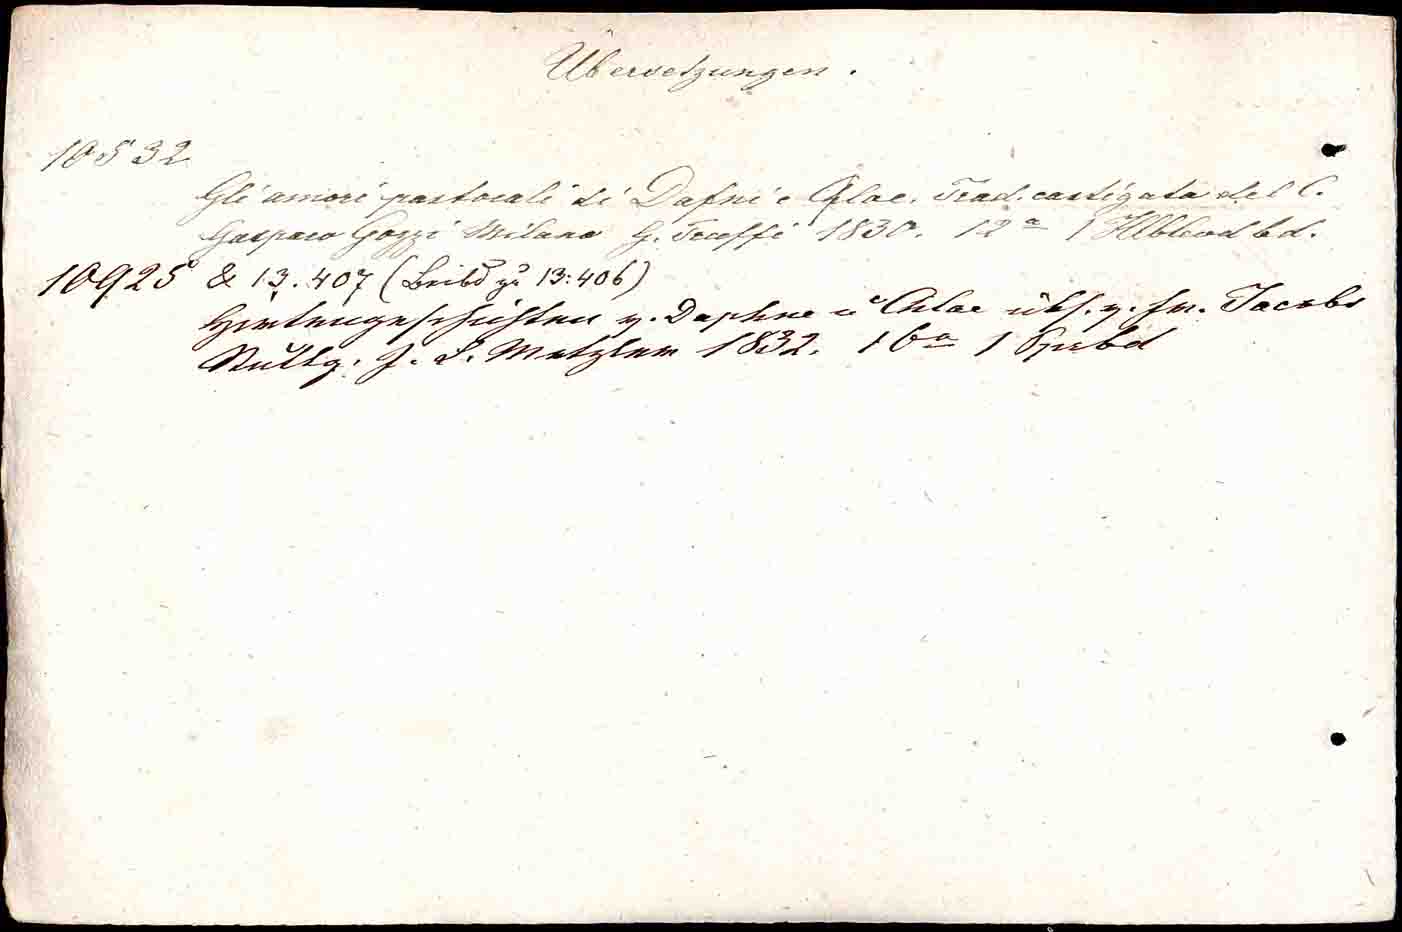 Übersetzungen.
10532
Gli amori pastorali di Dafni e Cloe. Trad. castigata del C.
Gasparo Gozzi Milano G. Truffi 1830. 12° 1 Hlbledbd.
10925 & 13.407 (Beibd zu 13:406)
Hirtengeschichten v. Daphne u Chloe übs. v. Fr. Jacobs
Stuttg. J. B. Metzler 1832. 16° 1 Ppbd